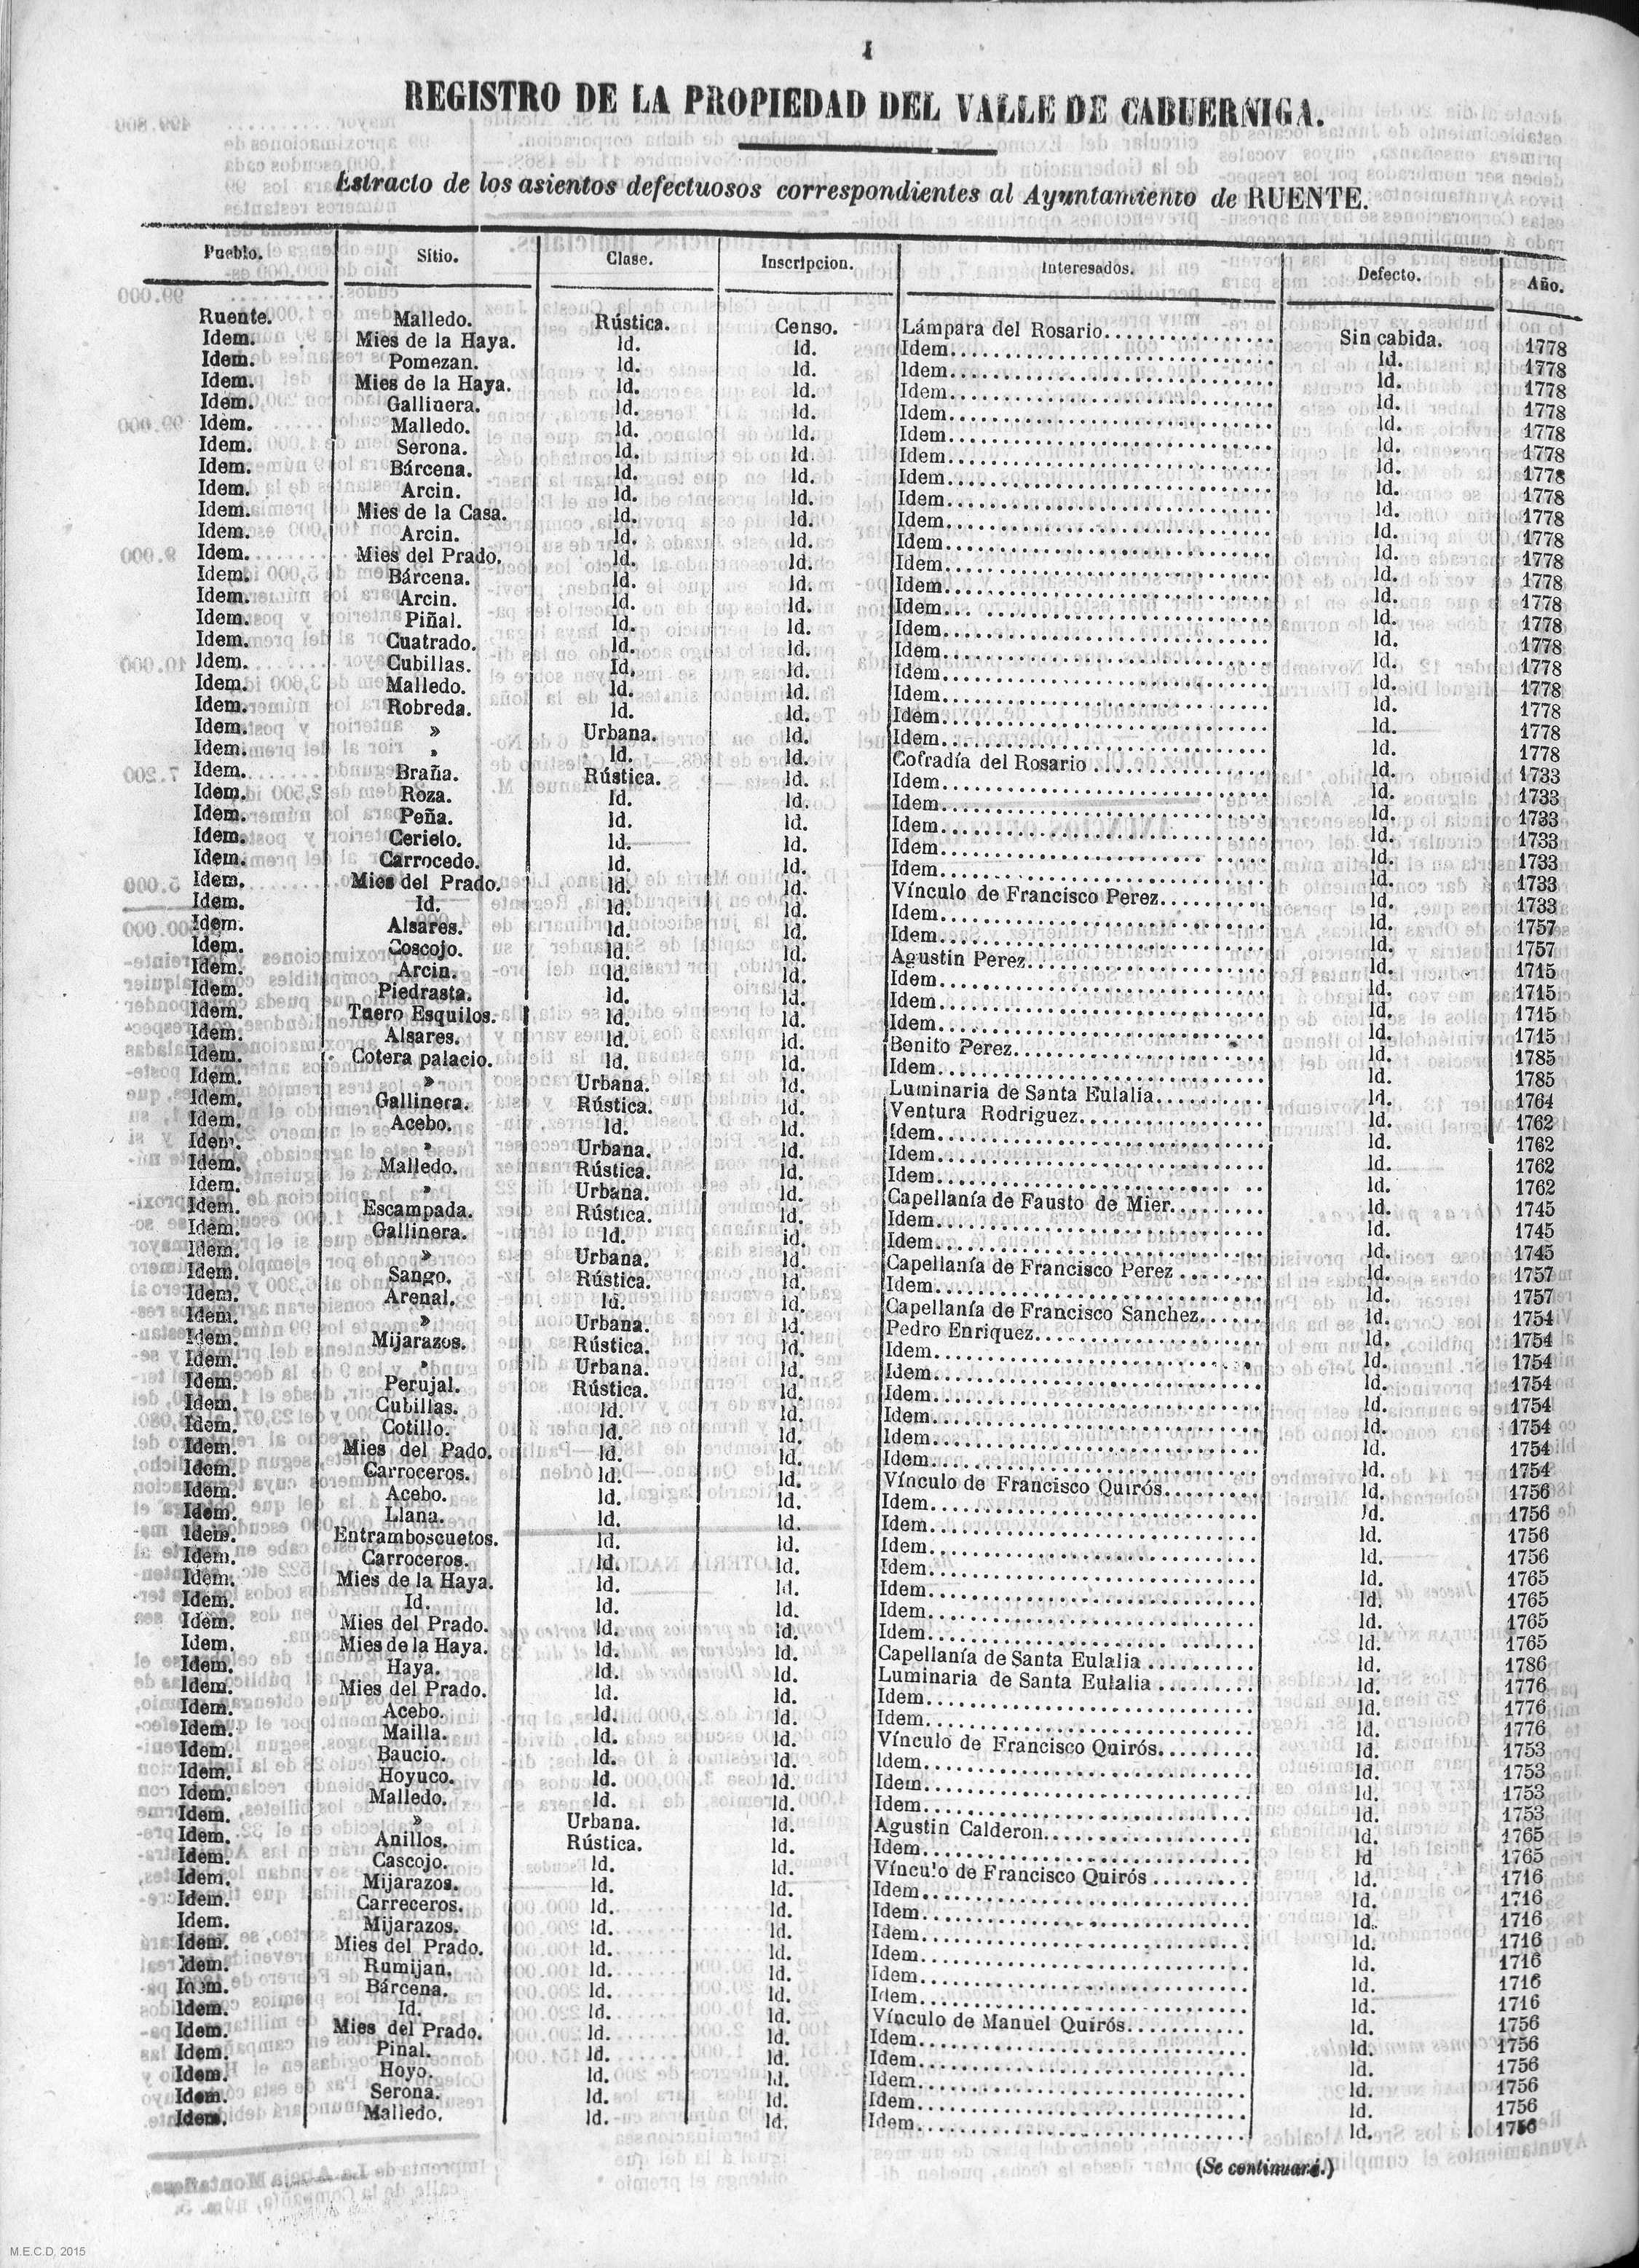 1
REGISTRO DE LA PROPIEDAD DEL VALLE DE CABUERNIGA.
Estracto de los asientos defectuosos correspondientes al Ayuntamiento de RUENTE.
Pueblo. Sitio. Clase. Inscripcion. Interesados. Defecto. Año.
Ruente. Malledo. Rústica. Censo. Lámpara del Rosario. Sin cabida. 1778
Idem. Mies de la Haya. Id. Id. Idem. Id. 1778
Idem. Pomezan. Id. Id. Idem. Id. 1778
Idem. Mies de la Haya. Id. Id. Idem. Id. 1778
Idem. Gallinera. Id. Id. Idem. Id. 1778
Idem. Malledo. Id. Id. Idem. Id. 1778
Idem. Serona. Id. Id. Idem. Id. 1778
Idem. Bárcena. Id. Id. Idem. Id. 1778
Idem. Arcin. Id. Id. Idem. Id. 1778
Idem. Mies de la Casa. Id. Id. Idem. Id. 1778
Idem. Arcin. Id. Id. Idem. Id. 1778
Idem. Mies del Prado. Id. Id. Idem. Id. 1778
Idem. Bárcena. Id. Id. Idem. Id. 1778
Idem. Arcin. Id. Id. Idem. Id. 1778
Idem. Piñal. Id. Id. Idem. Id. 1778
Idem. Cuatrado. Id. Id. Idem. Id. 1778
Idem. Cubillas. Id. Id. Idem. Id. 1778
Idem. Malledo. Id. Id. Idem. Id. 1778
Idem. Robreda. Id. Id. Idem. Id. 1778
Idem. » Urbana. Id. Idem. Id. 1778
Idem. » Id. Id. Cofradía del Rosario Id. 1733
Idem. Braña. Rústica. Id. Idem. Id. 1733
Idem. Roza. Id. Id. Idem. Id. 1733
Idem. Peña. Id. Id. Idem. Id. 1733
Idem. Cerielo. Id. Id. Idem. Id. 1733
Idem. Carrocedo. Id. Id. Idem. Id. 1733
Idem. Mies del Prado. Id. Id. Vínculo de Francisco Perez. Id. 1733
Idem. Id. Id. Id. Idem. Id. 1757
Idem. Alsares. Id. Id. Idem. Id. 1757
Idem. Coscojo. Id. Id. Agustin Perez. Id. 1715
Idem. Arcin. Id. Id. Idem. Id. 1715
Idem. Piedrasta. Id. Id. Idem. Id. 1715
Idem. Tnero Esquilos. Id. Id. Idem. Id. 1715
Idem. Alsares. Id. Id. Benito Perez. Id. 1785
Idem. Cotera palacio. Id. Id. Idem. Id. 1785
Idem. » Urbana. Id. Luminaria de Santa Eulalia. Id. 1764
Idem. Gallinera. Rústica. Id. Ventura Rodriguez. Id. 1762
Idem. Acebo. Id. Id. Idem. Id. 1762
Idem. » Urbana. Id. Idem. Id. 1762
Idem. Malledo. Rústica. Id. Idem. Id. 1762
Idem. » Urbana. Id. Capellanía de Fausto de Mier. Id. 1745
Idem. Escampada. Rústica. Id. Idem. Id. 1745
Idem. Gallinera. Id. id. Idem. Id. 1745
Idem. » Urbana. Id. Capellanía de Francisco Perez Id. 1757
Idem. Sango. Rústica. Id. Idem. Id. 1757
Idem. Arenal. Id. Id. Capellanía de Francisco Sanchez. Id. 1754
Idem. » Urbana. Id. Pedro Enriquez. Id. 1754
Idem. Mijarazos. Rústica. Id. Idem. Id. 1754
Idem. » Urbana. Id. Idem. Id. 1754
Idem. Perujal. Rústica. Id. Idem. Id. 1754
Idem. Cubillas. Id. Id. Idem. Id. 1754
Idem. Cotillo. Id. Id. Idem. Id. 1754
Idem. Mies del Pado. Id. Id. Idem. Id. 1754
Idem. Carroceros. Id. Id. Vínculo de Francisco Quirós. Id. 1756
Idem. Acebo. Id. Id. Idem. Id. 1756
Idem. Llana. Id. Id. Idem. Id. 1756
Idem. Entramboscuetos. Id. Id. Idem. Id. 1756
Idem. Carroceros. Id. Id. Idem. Id. 1765
Idem. Mies de la Haya. Id. Id. Idem. Id. 1765
Idem. Id. Id. Id. Idem. Id. 1765
Idem. Mies del Prado. Id. Id. Idem. Id. 1765
Idem. Mies de la Haya. Id. Id. Capellanía de Santa Eulalia Id. 1786
Idem. Haya. Id. Id. Luminaria de Santa Eulalia Id. 1776
Idem. Mies del Prado. Id. Id. Idem. Id. 1776
Idem. Acebo. Id. Id. Idem. Id. 1776
Idem. Mailla. Id. Id. Vínculo de Francisco Quirós. Id. 1753
Idem. Baucio. Id. Id. Idem. Id. 1753
Idem. Hoyuco. Id. Id. Idem. Id. 1753
Idem. Malledo. Id. Id. Idem. Id. 1753
Idem. » Urbana. Id. Agustin Calderon. Id. 1765
Idem. Anillos. Rústica. Id. Idem. Id 1765
Idem. Cascojo. Id. Id. Vínculo de Francisco Quirós Id. 1716
Idem. Mijarazos. Id. Id. Idem. Id. 1716
Idem. Carreceros. Id. Id. Idem. Id. 1716
Idem. Mijarazos. Id. Id. Idem. Id. 1716
Idem. Mies del Prado. Id. Id. Idem. Id. 1716
Idem. Rumijan. Id. Id. Idem. Id. 1716
Idem. Bárcena. Id. Id. Idem. Id. 1716
Idem. Id. Id. Id. Vínculo de Manuel Quirós. Id. 1756
Idem. Mies del Prado. Id. Id. Idem. Id. 1756
Idem. Pinal. Id. Id. Idem. Id. 1756
Idem. Hoyo. Id. Id. Idem. Id. 1756
Idem. Serona. Id. Id. Idem. Id. 1756
Idem. Malledo. Id. Id. Idem. Id. 1756
(Se continuará.)
M.E.C.D. 2015